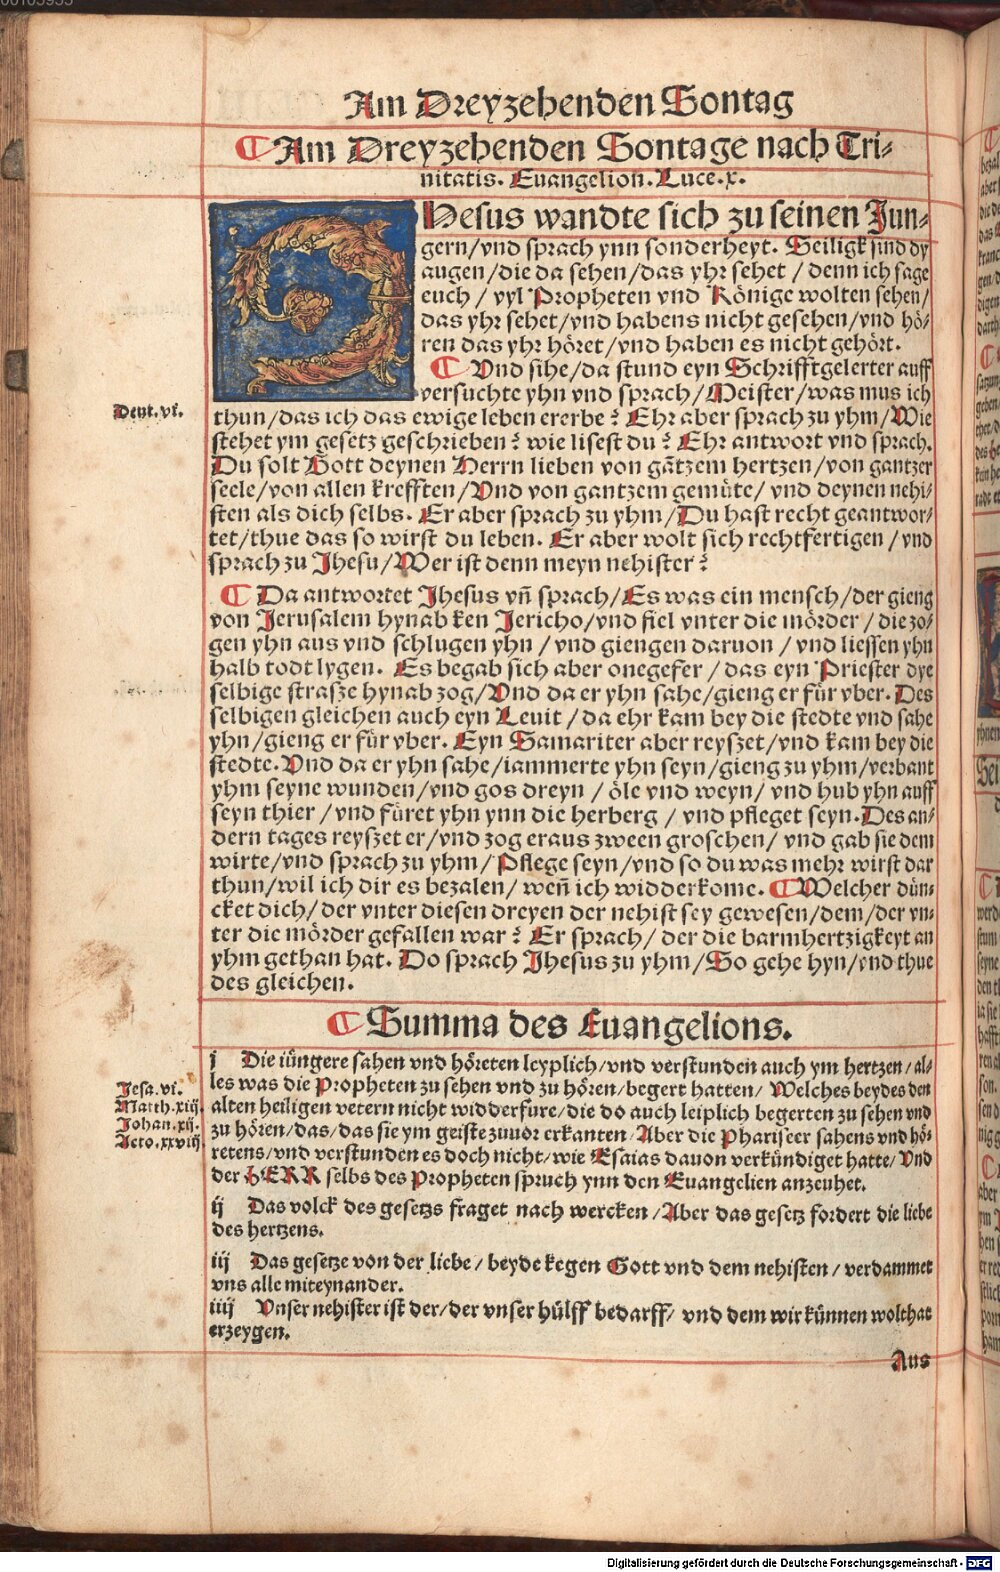 Am Dreyzehenden Sontag
¶ Am Dreyzehenden Sontage nach Tri⸗
nitatis. Euangelion. Luce. x.
JHesus wandte sich zu seinen Jun⸗
gern/vnd sprach ynn sonderheyt. Seiligk sind dy
augen/die da sehen/das yhr sehet/denn ich sage
euch/vyl Propheten vnd Könige wolten sehen/
das yhr sehet/vnd habens nicht gesehen/vnd hö⸗
ren das yhr höret/vnd haben es nicht gehört.
¶ Vnd sihe/da stund eyn Schrifftgelerter auff
versuchte yhn vnd sprach/Meister/was mus ich
Deut. vi.
thun/das ich das ewige leben ererbe? Ehr aber sprach zu yhm/Wie
stehet ym gesetz geschrieben? wie lisest du? Ehr antwort vnd sprach.
Du solt Gott deynen Herrn lieben von gãtzem hertzen/von gantzer
seele/von allen krefften/Vnd von gantzem gemüte/vnd deynen nehi⸗
sten als dich selbs. Er aber sprach zu yhm/Du hast recht geantwor⸗
tet/thue das so wirst du leben. Er aber wolt sich rechtfertigen/vnd
sprach zu Jhesu/Wer ist denn meyn nehister?
¶ Da antwortet Jhesus vñ sprach/Es was ein mensch/der gieng
von Jerusalem hynab ken Jericho/vnd fiel vnter die mörder/die zo⸗
gen yhn aus vnd schlugen yhn/vnd giengen daruon/vnd liessen yhn
halb todt lygen. Es begab sich aber onegefer/das eyn Priester dye
selbige strasze hynab zog/Vnd da er yhn sahe/gieng er für vber. Des
selbigen gleichen auch eyn Leuit/da ehr kam bey die stedte vnd sahe
yhn/gieng er für vber. Eyn Samariter aber reyszet/vnd kam bey die
stedte. Vnd da er yhn sahe/iammerte yhn seyn/gieng zu yhm/verbant
yhm seyne wunden/vnd gos dreyn/öle vnd weyn/vnd hub yhn auff
seyn thier/vnd füret yhn ynn die herberg/vnd pfleget seyn. Des an⸗
dern tages reyszet er/vnd zog eraus zween groschen/vnd gab sie dem
wirte/vnd sprach zu yhm/Pflege seyn/vnd so du was mehr wirst dar
thun/wil ich dir es bezalen/weñ ich widderkome. ¶ Welcher dün⸗
cket dich/der vnter diesen dreyen der nehist sey gewesen/dem/der vn⸗
ter die mörder gefallen war? Er sprach/der die barmhertzigkeyt an
yhm gethan hat. Do sprach Jhesus zu yhm/So gehe hyn/vnd thue
des gleichen.
¶ Summa des Euangelions.
j Die iüngere sahen vnd höreten leyplich/vnd verstunden auch ym hertzen/al⸗
les was die Propheten zu sehen vnd zu hören/begert hatten/Welches beydes den
alten heiligen vetern nicht widderfure/die do auch leiplich begerten zu sehen vnd
zu hören/das/das sie ym geiste zuuor erkanten/Aber die Phariseer sahens vnd hö⸗
retens/vnd verstunden es doch nicht/wie Esaias dauon verkündiget hatte/Vnd
der HERR selbs des Propheten spruch ynn den Euangelien anzeuhet.
Jesa. vi.
Matth. xiij.
Johan. xij.
Acto. xxviij
ij Das volck des gesetzs fraget nach wercken/Aber das gesetz fordert die liebe
des hertzens.
iij Das gesetze von der liebe/beyde kegen Gott vnd dem nehisten/verdammet
vns alle miteynander.
iiij Vnser nehister ist der/der vnser hülff bedarff/vnd dem wir künnen wolthat
erzeygen.
Aus
Digitalisierung gefördert durch die Deutsche Forschungsgemeinschaft - DFG